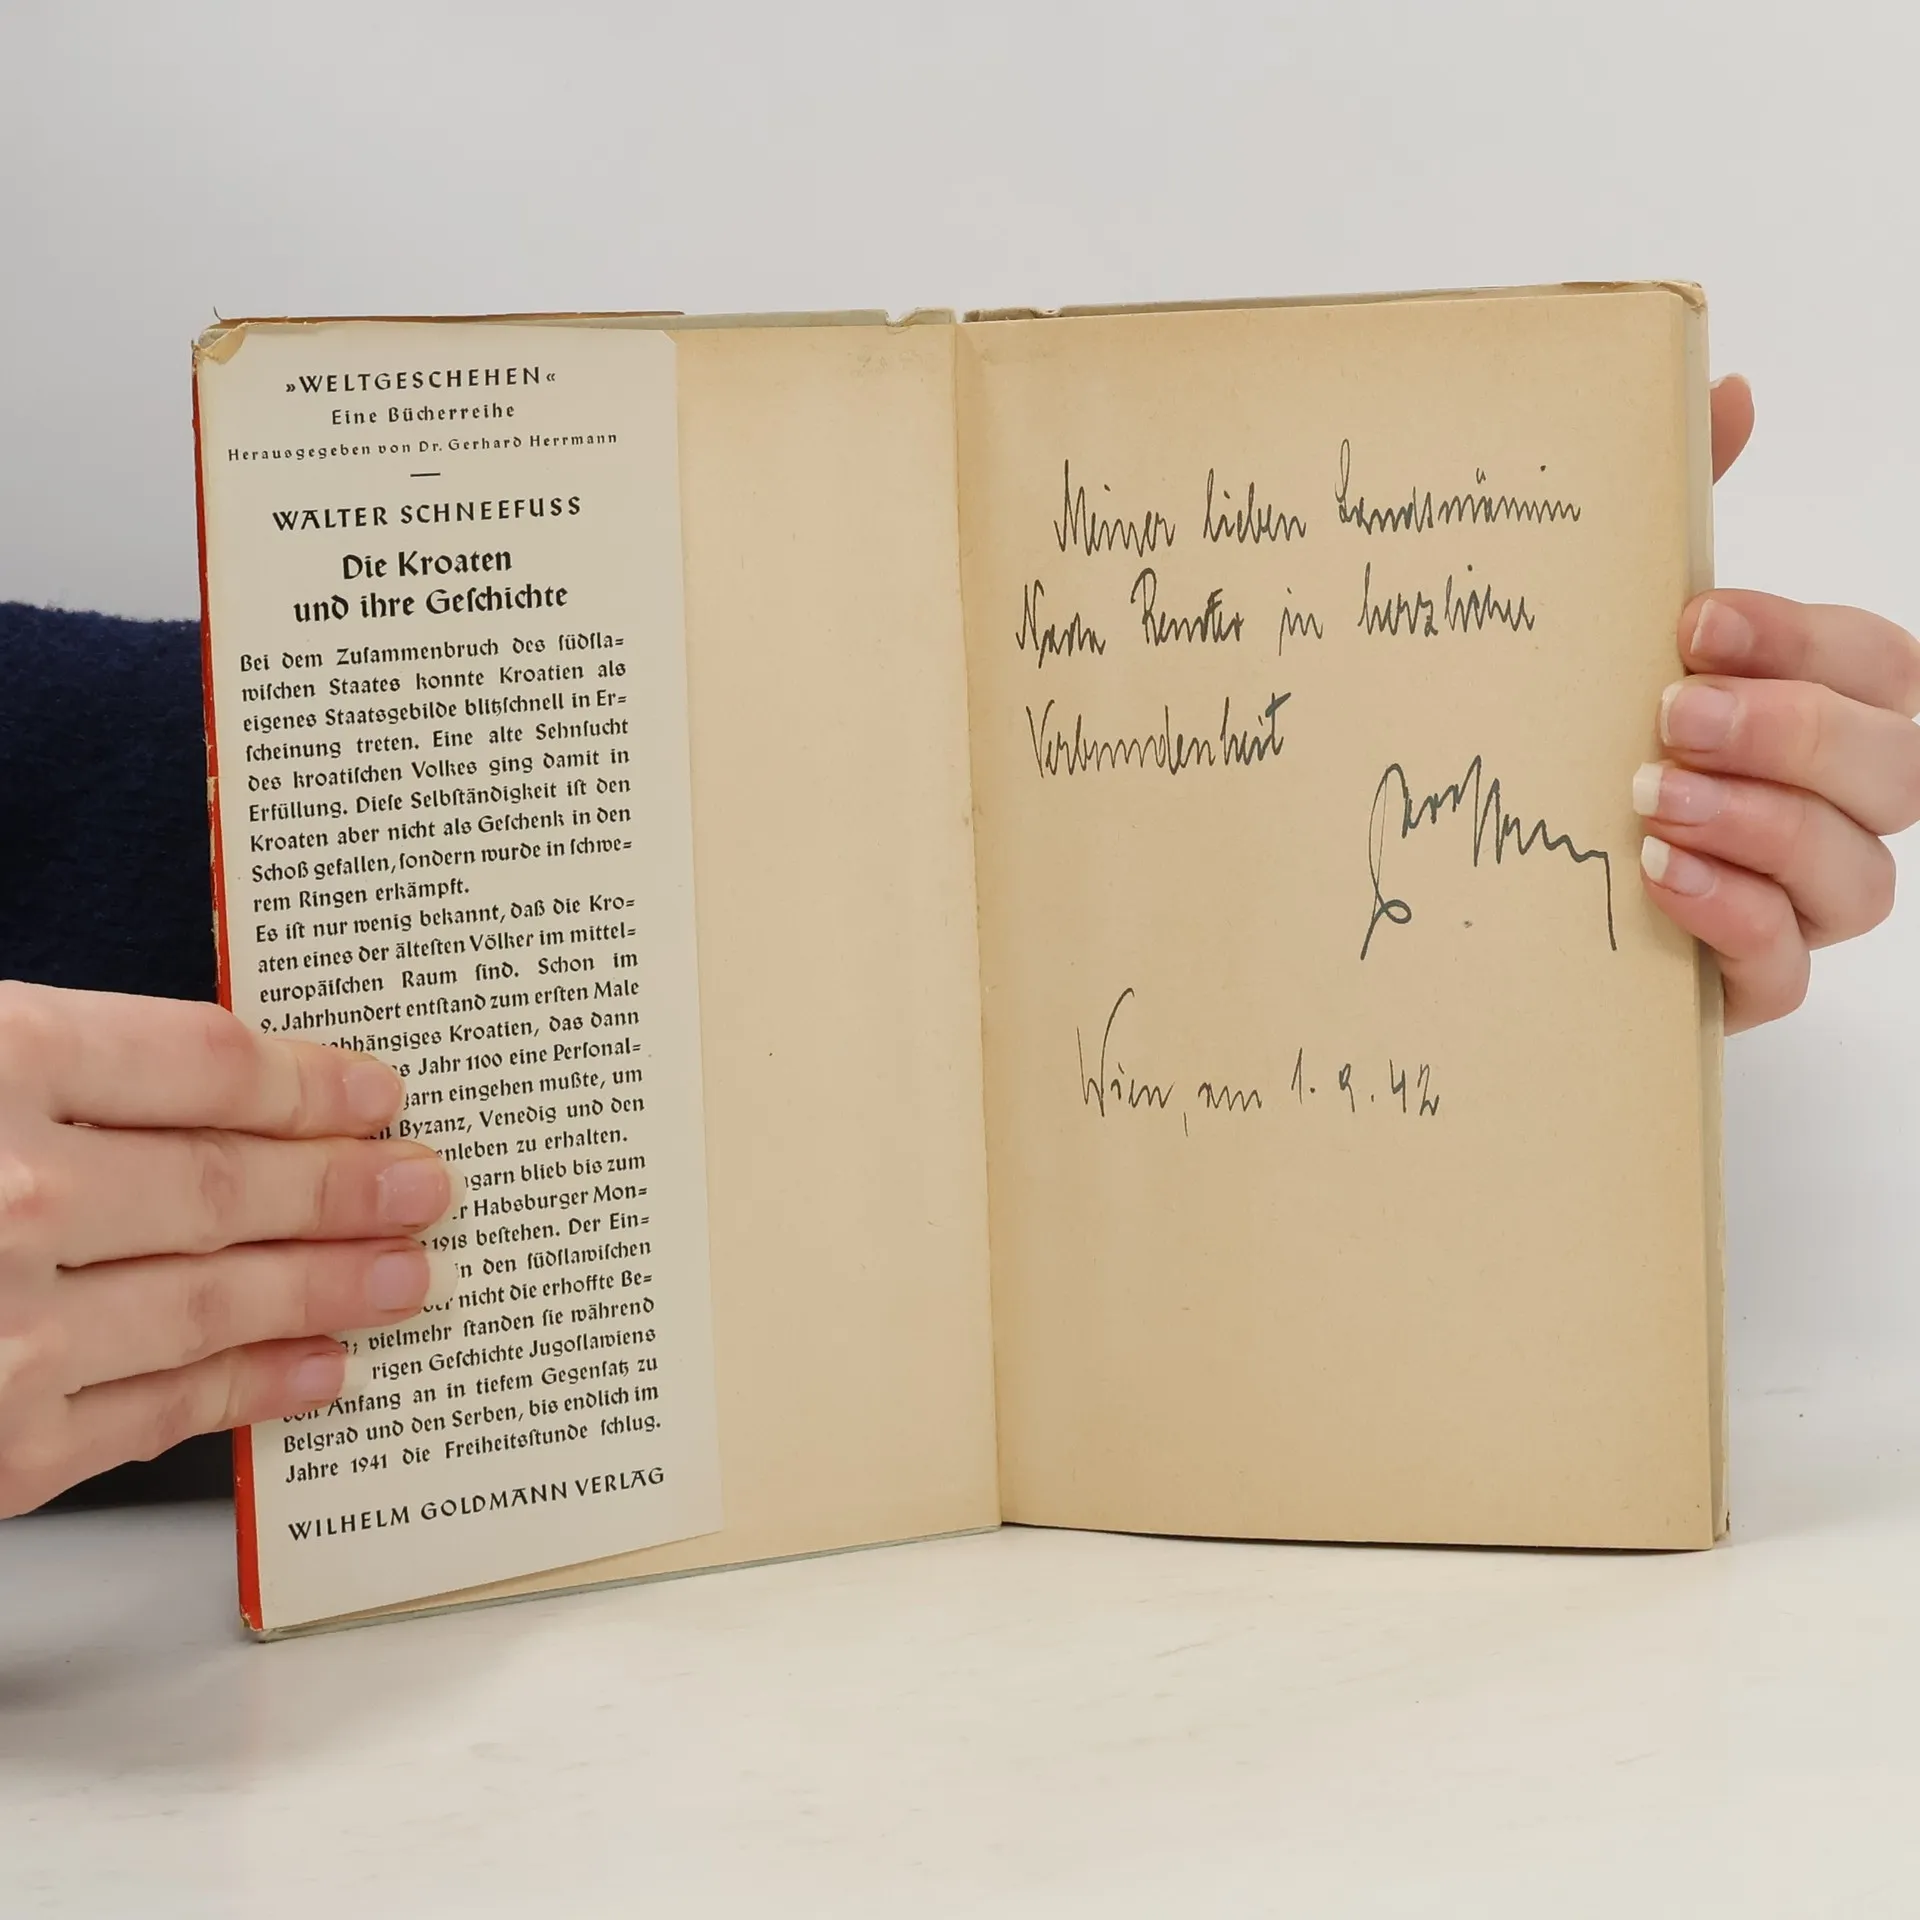 »WELTGESCHEHEN«
Eine Bücherreihe
Herausgegeben von Dr. Gerhard Herrmann
WALTER SCHNEEFUSS
Die Kroaten
und ihre Geſchichte
Bei dem Zuſammenbruch des ſüdſla=
wiſchen Staates konnte Kroatien als
eigenes Staatsgebilde blitzſchnell in Er=
ſcheinung treten. Eine alte Sehnſucht
des kroatiſchen Volkes ging damit in
Erfüllung. Dieſe Selbſtändigkeit iſt den
Kroaten aber nicht als Geſchenk in den
Schoß gefallen, ſondern wurde in ſchwe=
rem Ringen erkämpft.
Es iſt nur wenig bekannt, daß die Kro=
aten eines der älteſten Völker im mittel=
europäiſchen Raum ſind. Schon im
9. Jahrhundert entſtand zum erſten Male
abhängiges Kroatien, das dann
s Jahr 1100 eine Perſonal=
garn eingehen mußte, um
n Byzanz, Venedig und den
enleben zu erhalten.
ngarn blieb bis zum
r Habsburger Mon=
1918 beſtehen. Der Ein=
in den ſüdſlawiſchen
nicht die erhoffte Be=
; vielmehr ſtanden ſie während
rigen Geſchichte Jugoſlawiens
von Anfang an in tiefem Gegenſatz zu
Belgrad und den Serben, bis endlich im
Jahre 1941 die Freiheitsſtunde ſchlug.
WILHELM GOLDMANN VERLAG
Meiner lieben Landsmännin
in herzlicher
Verbundenheit
Wien, am 1.9.42